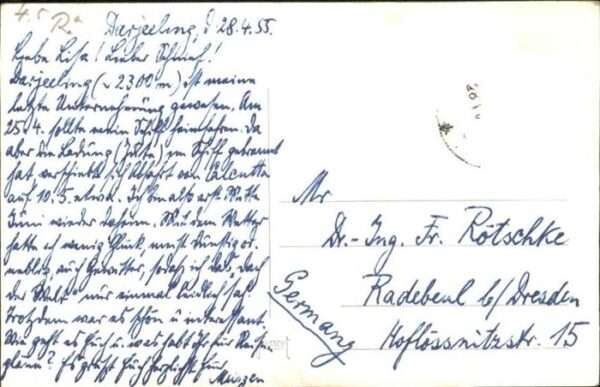 4.5 Ra
Darjeeling, d 28.4.55.
Liebe Lisa! Lieber Schnieh!
Darjeeling (~ 2300 m) ist meine
letzte Unternehmung gewesen. Am
25.4. sollte mein Schiff heimfahren. Da
aber die Ladung (Jute) im Schiff gebrannt
hat verschiebt sich Abfahrt von Calcutta
auf 10.5. etwa. Ich bin also erst Mitte
Juni wieder daheim. Mit dem Wetter
hatte ich wenig Glück, meist dunstig od.
neblig, auch Gewitter, sodaß ich das „Dach
der Welt" nur einmal leidlich sah.
Trotzdem war es schön u interessant.
Wie geht es Euch u. was habt Ihr für Reise
pläne? Es grüßt Euch herzlichst Euer
Mr
Dr.-Ing. Fr. Rötschke
Radebeul b/Dresden
Hoflössnitzstr. 15
Germany